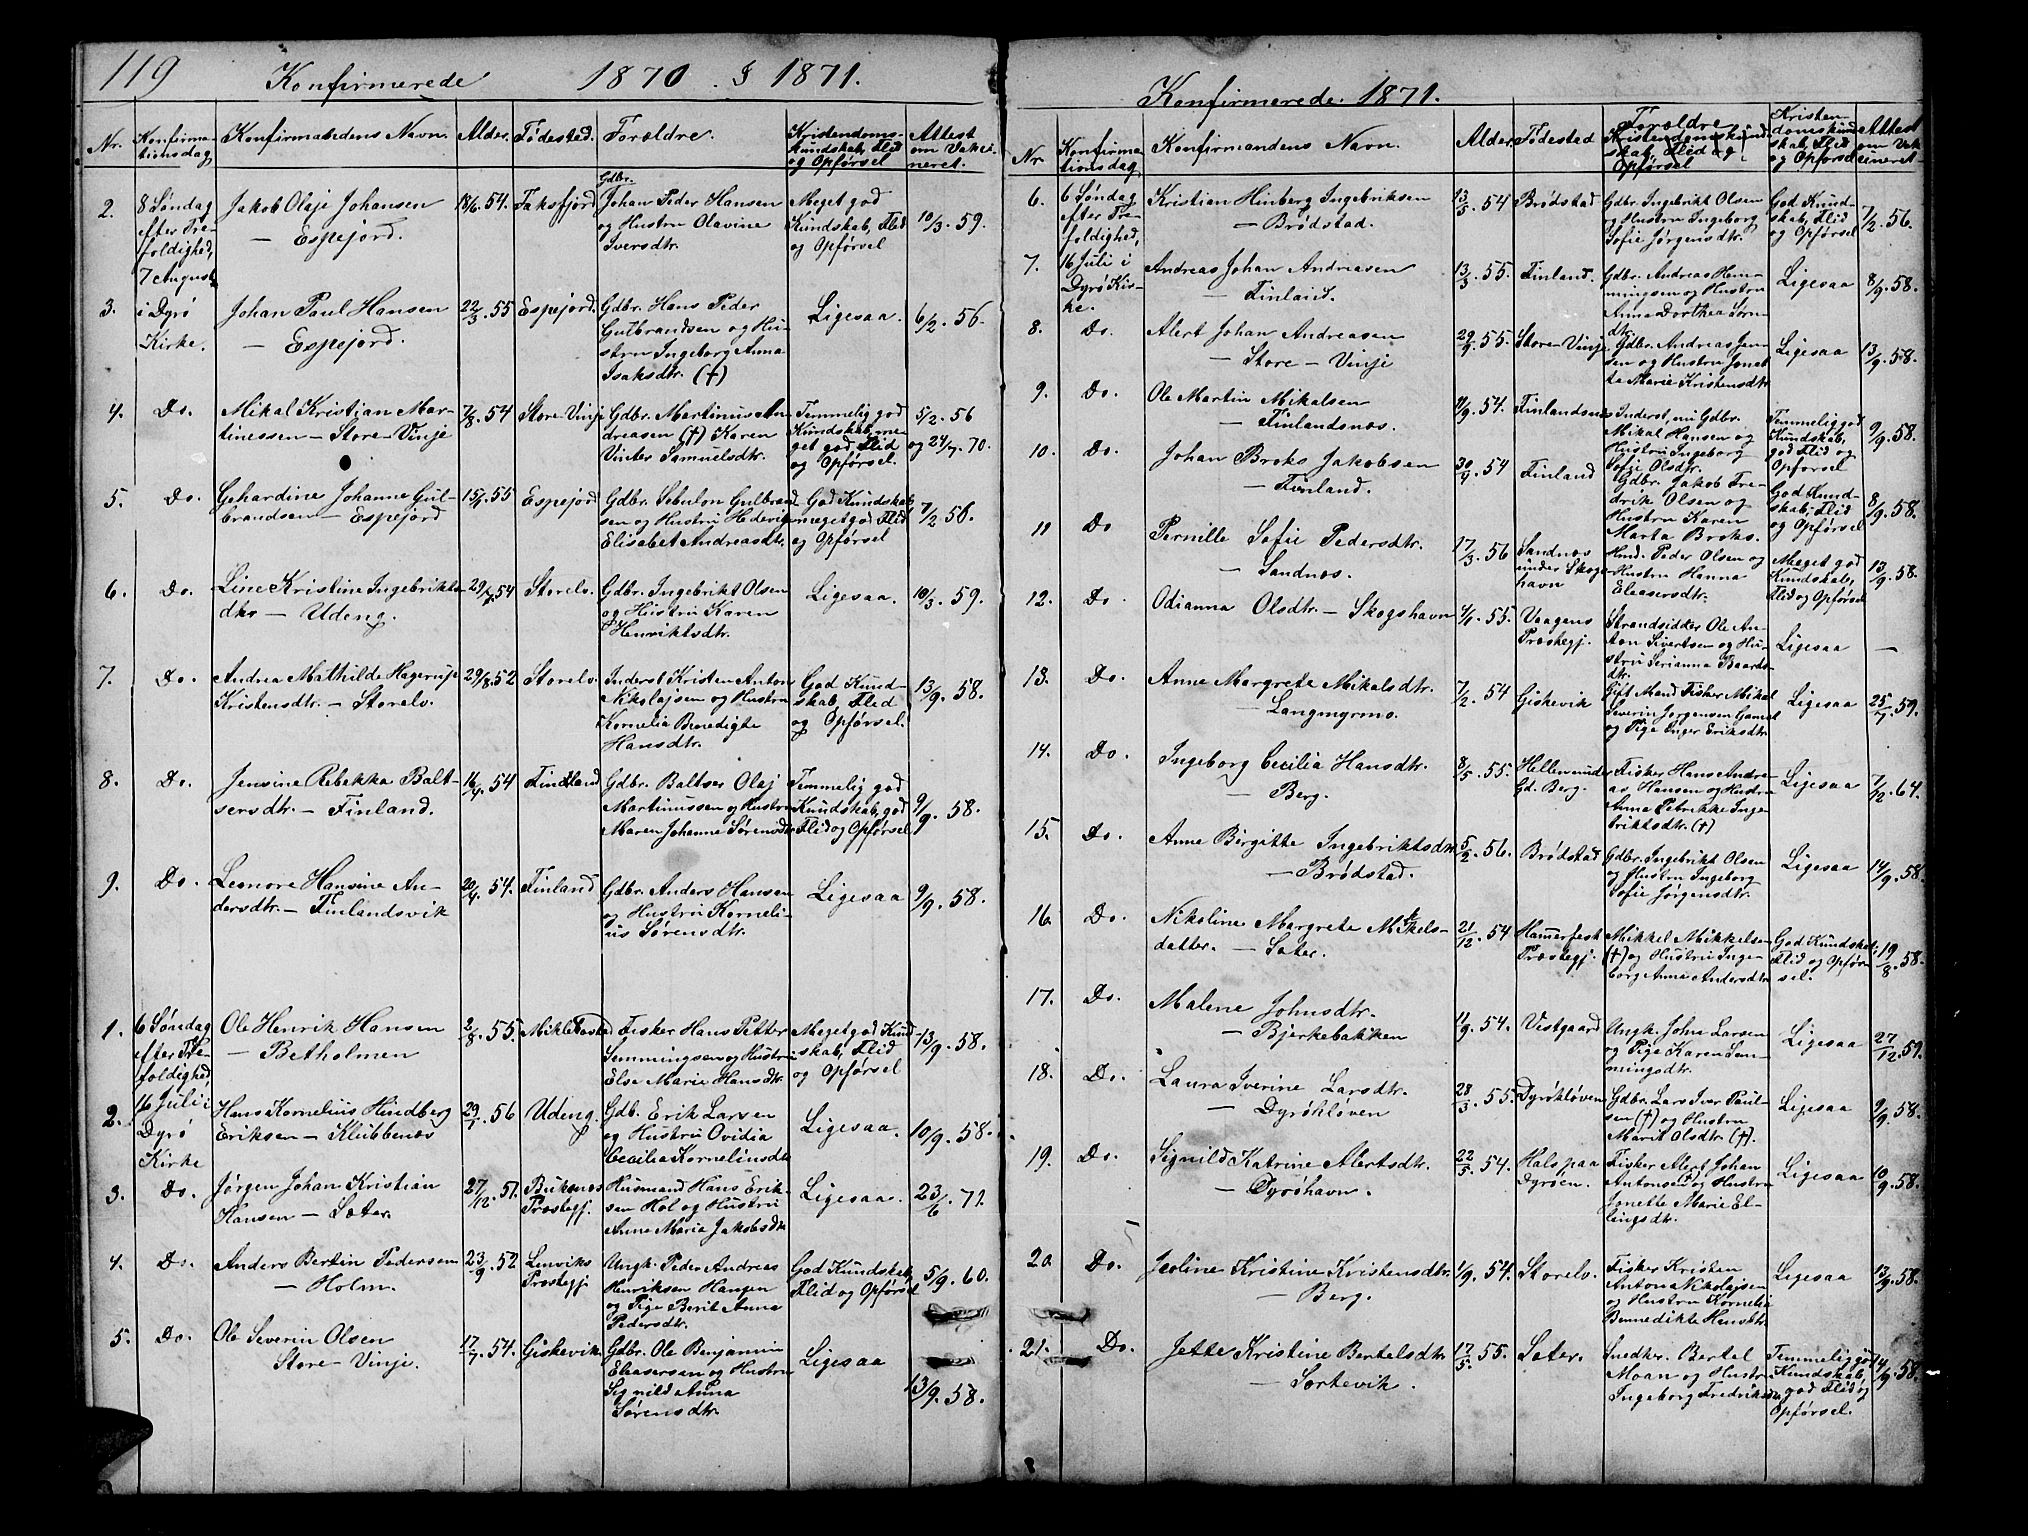 119
Konfirmerede 1870 & 1871.
Nr. Konfirmationsdag Konfirmandens Navn. Alder. Fødestad. Forældre. Kristendomskundskab, Flid og Opførsel Attest om Vaksineret.
2. 8 Søndag efter Trefoldighed, 7 August i Dyrø Kirke. Jakob Olaji Johansen — Espejord. 18/6. 54. Faksfjord Gdbr. Johan Peder Hansen og Hustru Olavine Iversdtr. Meget god Kundskab, Flid og Opførsel 10/3. 59.
3. Johan Paul Hansen — Espejord. 22/3. 55 Espejord. Gdbr. Hans Peder Gulbrandsen og Hustru Ingeborg Anna Isaksdtr. (†) Ligesaa. 6/2. 56.
4. Do. Mikal Kristian Martinessen — Store-Vinje 7/8. 54 Store-Vinje Gdbr. Martinus Andreasen (†) Karen Vinter Samuelsdtr. Temmelig god Kundskab, meget god Flid og Opførsel. 5/2. 56 og 24/7. 70.
5. Do. Gehardine Johanne Gulbrandsen — Espejord 15/1. 55 Espejord Gdbr. Sebulon Gulbrandsen og Hustru Hedevig Elisabet Andreasdtr. God Kundskab meget god Flid og Opførsel 7/2. 56.
6. Do. Line Kristine Ingebriktsdtr — Udeng. 29/7. 54 Storelv. Gdbr. Ingebrikt Olsen og Hustru Karen Henriktsdtr. Ligesaa. 10/3. 59.
7. Do. Andrea Mathilde Hagerup Kristensdtr. — Storelv. 29/8. 52 Storelv. Inderst Kristen Anton Nikolajsen og Hustru Kornelia Benedigte Hansdtr. God Kundskab, Flid og Opførsel. 13/9. 58.
8. Do. Jensine Rebekka Baltsersdtr. — Finland. 16/4. 54 Finland Gdbr. Baltser Olaj Martinussen og Hustru Maren Johanne Sørensdtr Temmelig god Kundskab, god Flid og Opførsel 9/9. 58.
9. Do. Leonore Hansine Andersdtr. — Finlandsvik 20/4. 54. Finland Gdbr. Anders Hansen og Hustru Kornelius Sørensdtr. Ligesaa 9/9. 58.
1. 6 Søndag efter Trefoldighed, 16 Juli i Dyrø Kirke Ole Henrik Hansen — Betholmen 2/8. 55. Mikle Fisker Hans Petter Semmingsen og Hustru Else Marie Hansdtr Meget god Kundskab, Flid og Opførsel 13/9. 58.
2. Hans Kornelius Hindberg Eriksen — Klubbenes 29/1. 56 Udeng. Gdb. Erik Larsen og Hustru Ovidia Cecilia Korneliusdtr Ligesaa. 10/9. 58.
3. Do. Jørgen Johan Kristian Hansen — Sæter. 27/12. 51. Buksnes Præstegj. Husmand Hans Eriksen Hol og Hustru Anne Maria Jakobsdtr Ligesaa. 23/6. 71.
4. Do. Anders Bertin Pedersen — Holm. 23/9. 52 Lenviks Præstegj. Ungk. Peder Andreas Henriksen Hangen og Pige Berit Anna Pedersdtr. God Kundskab Flid og Opførsel 5/9. 60.
5. Do. Ole Severin Olsen Store-Vinje. 17/7. 54. Giskevik. Gdbr. Ole Benjamin Eleasersen og Hustru Signild Anna Sørensdtr. Ligesaa 13/9. 58.
Konfirmerede. 1871.
Nr Konfirmationsdag Konfirmandens Navn. Alder. Fødestad Forældre Kristendomskundskab, Flid og Opførsel Kristendomskundskab, Flid og Opførsel Attest om Vaksineret.
6. 6 Søndag efter Trefoldighed, 16 Juli i Dyrø Kirke. Kristian Hinberg Ingebriksen — Brødstad. 13/5. 54 Brødstad Gdbr. Ingebrikt Olsen og Hustru Ingeborg Sofie Jørgensdtr. God Kundskab, Flid og Opførsel 7/2. 56.
7. Andreas Johan Andreasen — Finland. 13/3. 55. Finland. Gdbr. Andreas Henningsen og Hustru Anna Dorthea Sørndtr. Ligesaa 8/9. 58.
8. Do. Alert Johan Andreasen — Store-Vinje 29/9. 55. Store-Vinje Gdbr. Andreas Jensen og Hustru Jonette Marie Kristensdtr Ligesaa 13/9. 58.
9. Do. Ole Martin Mikalsen — Finlandsnæs. 11/9. 54. Finlandsnæs Inderst, nu Gdbr. Mikal Hansen og Hustru Ingeborg Sofie Olsdtr. Temmelig god Kundskab, god Flid og Opførsel 9/9. 58.
10. Do. Johan Broks Jakobsen — Finland. 30/9. 54 Finland Gdbr. Jakob Fredrik Olsen og Hustru Karen Marta Broks. God Kundskab, Flid og Opførsel 8/9. 58.
11 Do Pernille Sofie Pedersdtr. — Sandnes. 17/3. 56 Sandnes under Skogshavn Hmd. Peder Olsen og Hustru Hanna Eleasersdtr. Meget god Kundskab, Flid og Opførsel 13/9. 58.
12. Do. Odianna Olsdtr. — Skogshavn 4/1. 55. Vaagens Præstegj. Strandsidder Ole Anton Sivertsen og Hustru Serianna Baardsdtr. Ligesaa —
13. Do. Anne Margrete Mikalsdtr. — Langmyrmo. 7/2. 54 Giskevik Gift Mand Fisker Mikal Severin Jørgensen Gamst og Pige Inger Eriksdtr Ligesaa 25/7. 59.
14. Do. Ingeborg Cecilia Hansdtr. — Berg. 8/5. 55. Helleren under Gd. Berg. Fisker Hans Andreas Hansen og Hustru Anna Petrikke Ingebriktsdtr. (†) Ligesaa 7/12. 64.
15. Do. Anne Birgitte Ingebriktsdtr — Brødstad. 5/2. 56. Brødstad Gdbr. Ingebrikt Olsen og Hustru Ingeborg Sofie Jørgensdtr. Ligesaa 14/9. 58.
16. Do. Nikoline Margrete Mikkelsdatter. — Sæter. 21/12. 54 Hamerfest Præstegj. Mikkel Mikkelsen (†) og Hustru Ingeborg Anna Andersdtr God Kundskab Flid og Opførsel. 19/8. 58.
17. Do. Malene Johnsdtr. — Bjerkebakken 11/9. 54. Vestgaard Ungk. John Larsen og Pige Karen Semmingsdtr. Ligesaa 27/12. 59.
18. Do. Laura Iverine Larsdtr. — Dyrøkløven 28/3. 55. Dyrøkløven Gdbr. Lars Iver Paulsen (†) og Hustru Marit Olsdtr. (†). Ligesaa 9/9. 58.
19. Do. Signild Katrine Alertsdtr. — Dyrøhavn. 22/5. 54. Hals paa Dyrøen. Fisker Alert Johan Antonsen og Hustru Jonette Marie Elingsdtr. Ligesaa 10/9. 58.
20. Do. Jeoline Kristine Kristensdtr. — Berg. 1/9. 54. Storelv. Fisker Kristen Anton Nikolajsen og Hustru Kornelia Bennedikte Hansdtr. Ligesaa 13/9. 58.
21. Do. Jette Kristine Bertelsdtr — Sørtevik. 17/5. 55. Sæter. Snedker. Bertel Moan og Hustru Ingeborg Fredriksen Temmelig god Kundskab, god Flid og Opførsel. 14/9. 58.